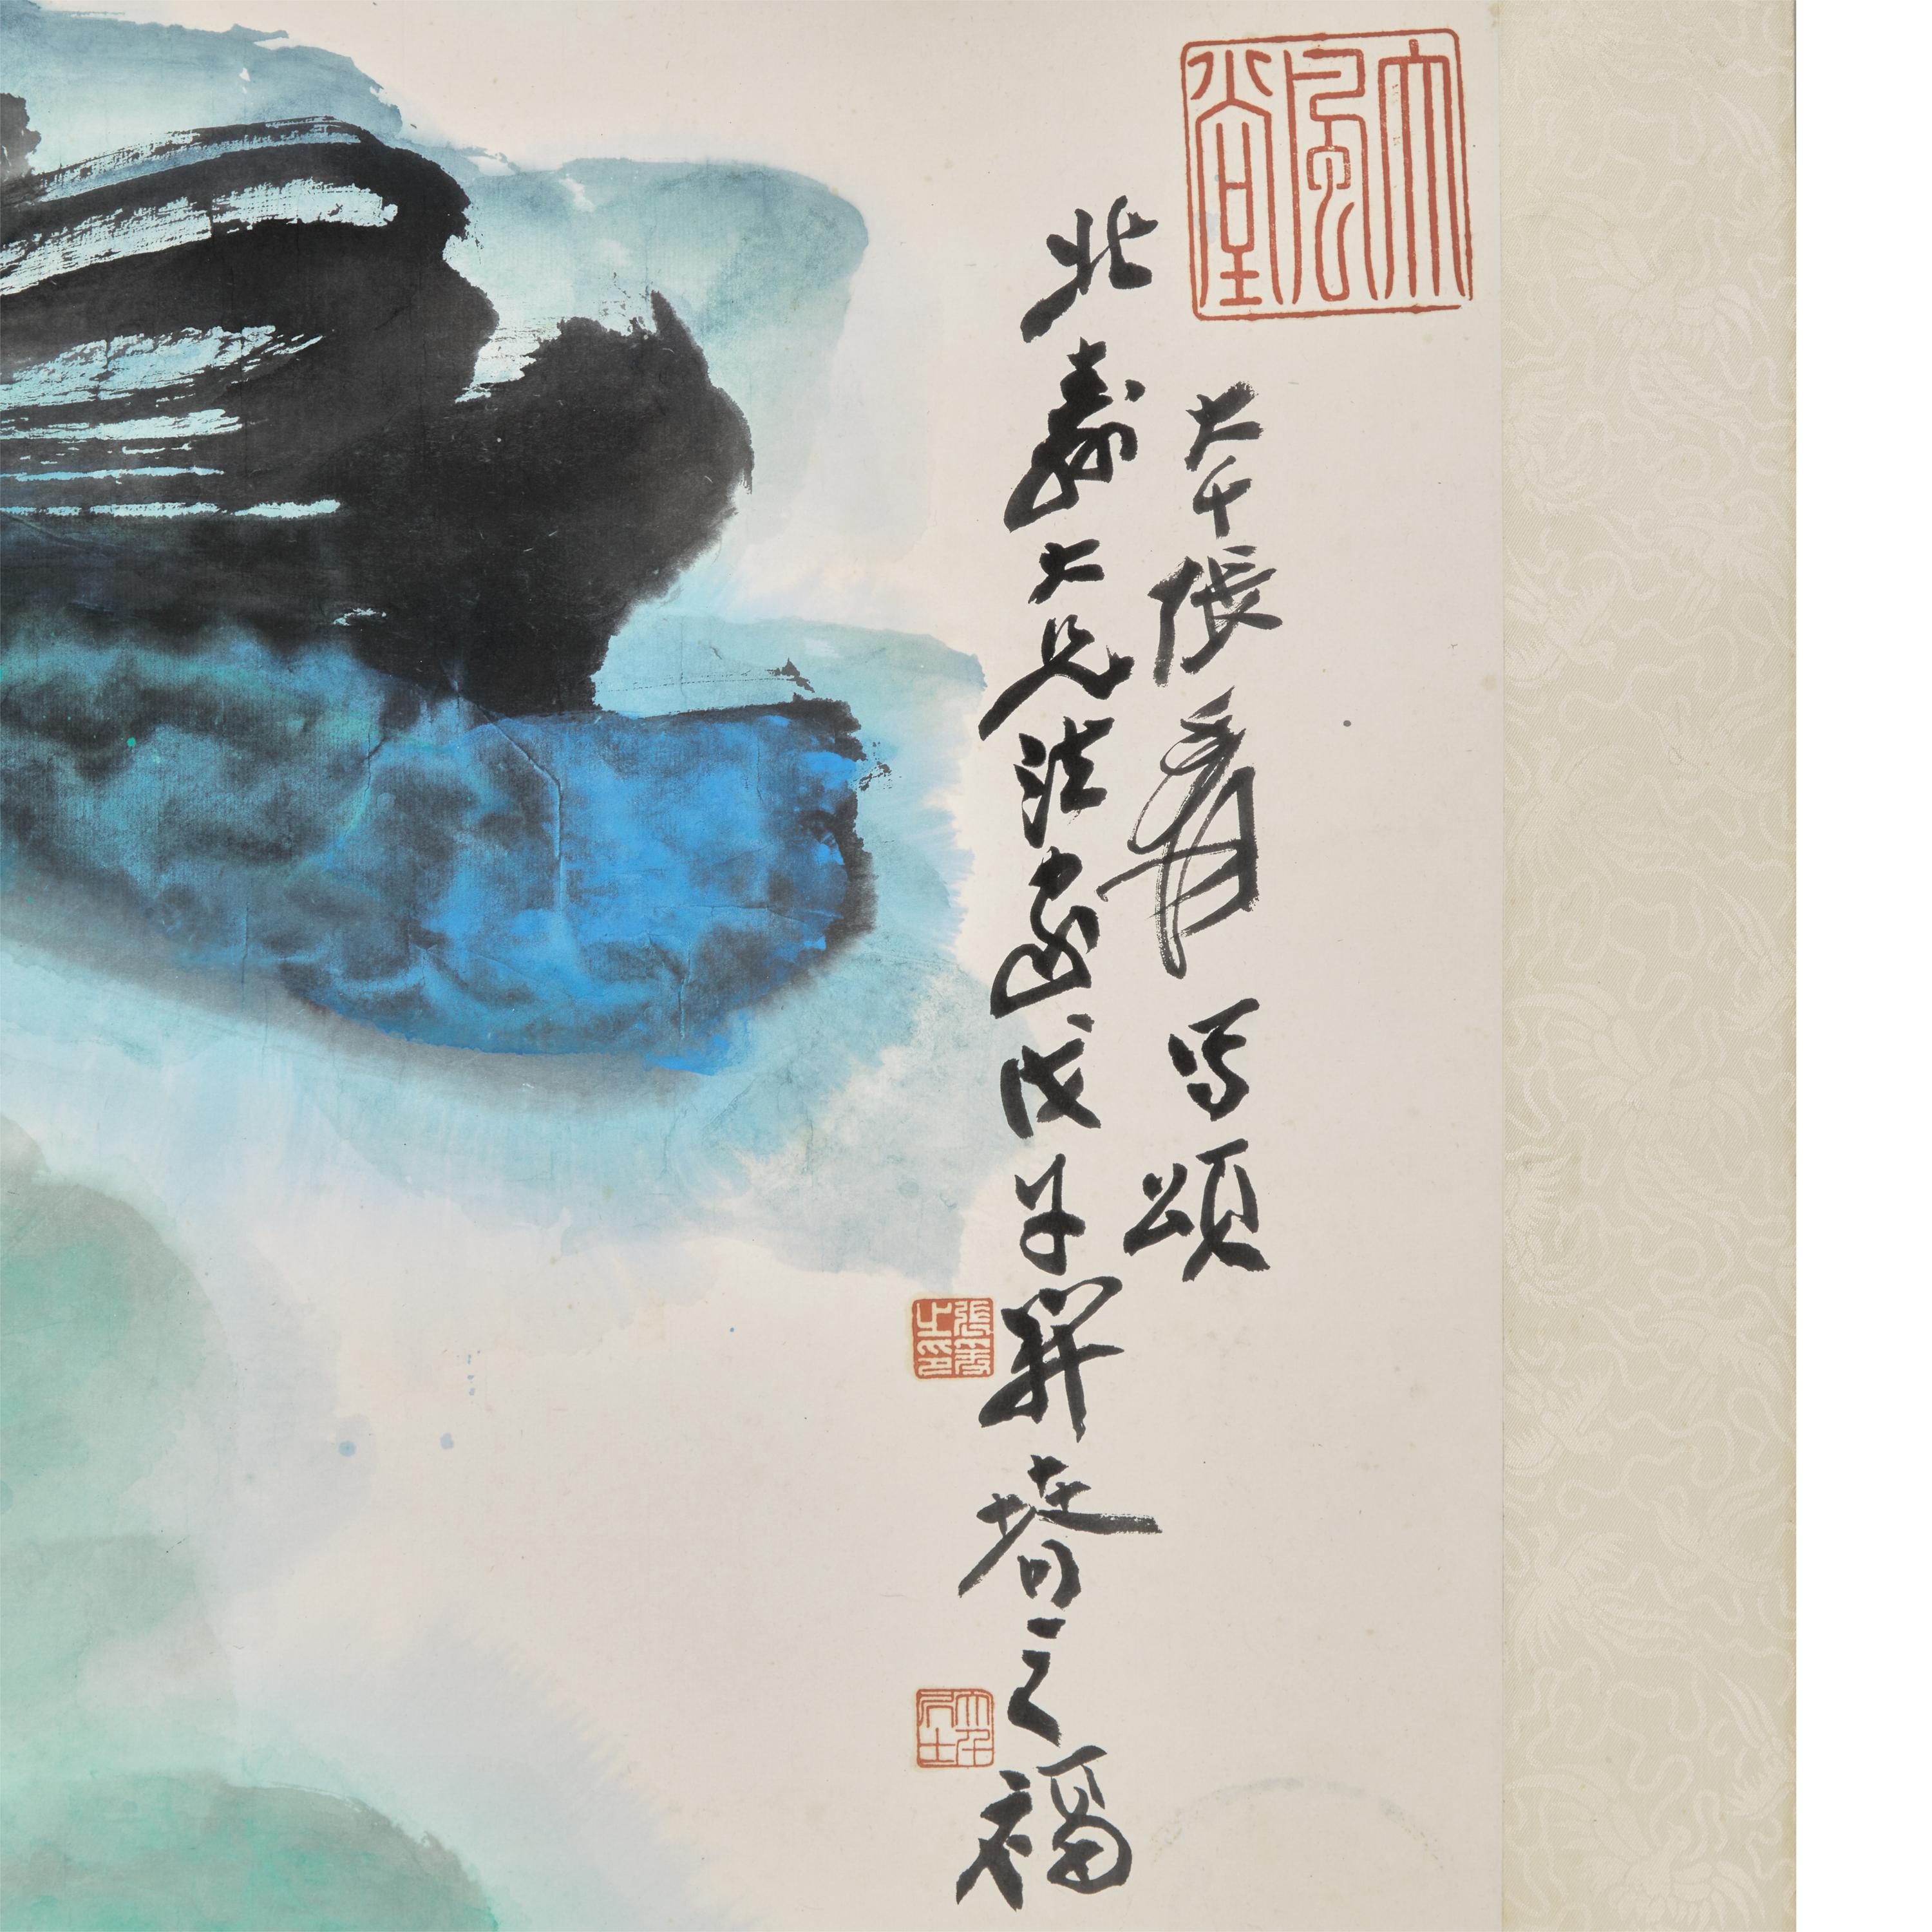 大風堂
大千張爰寫頌
北壽大兄法家戊午開春之福
張爰之印
大千居士